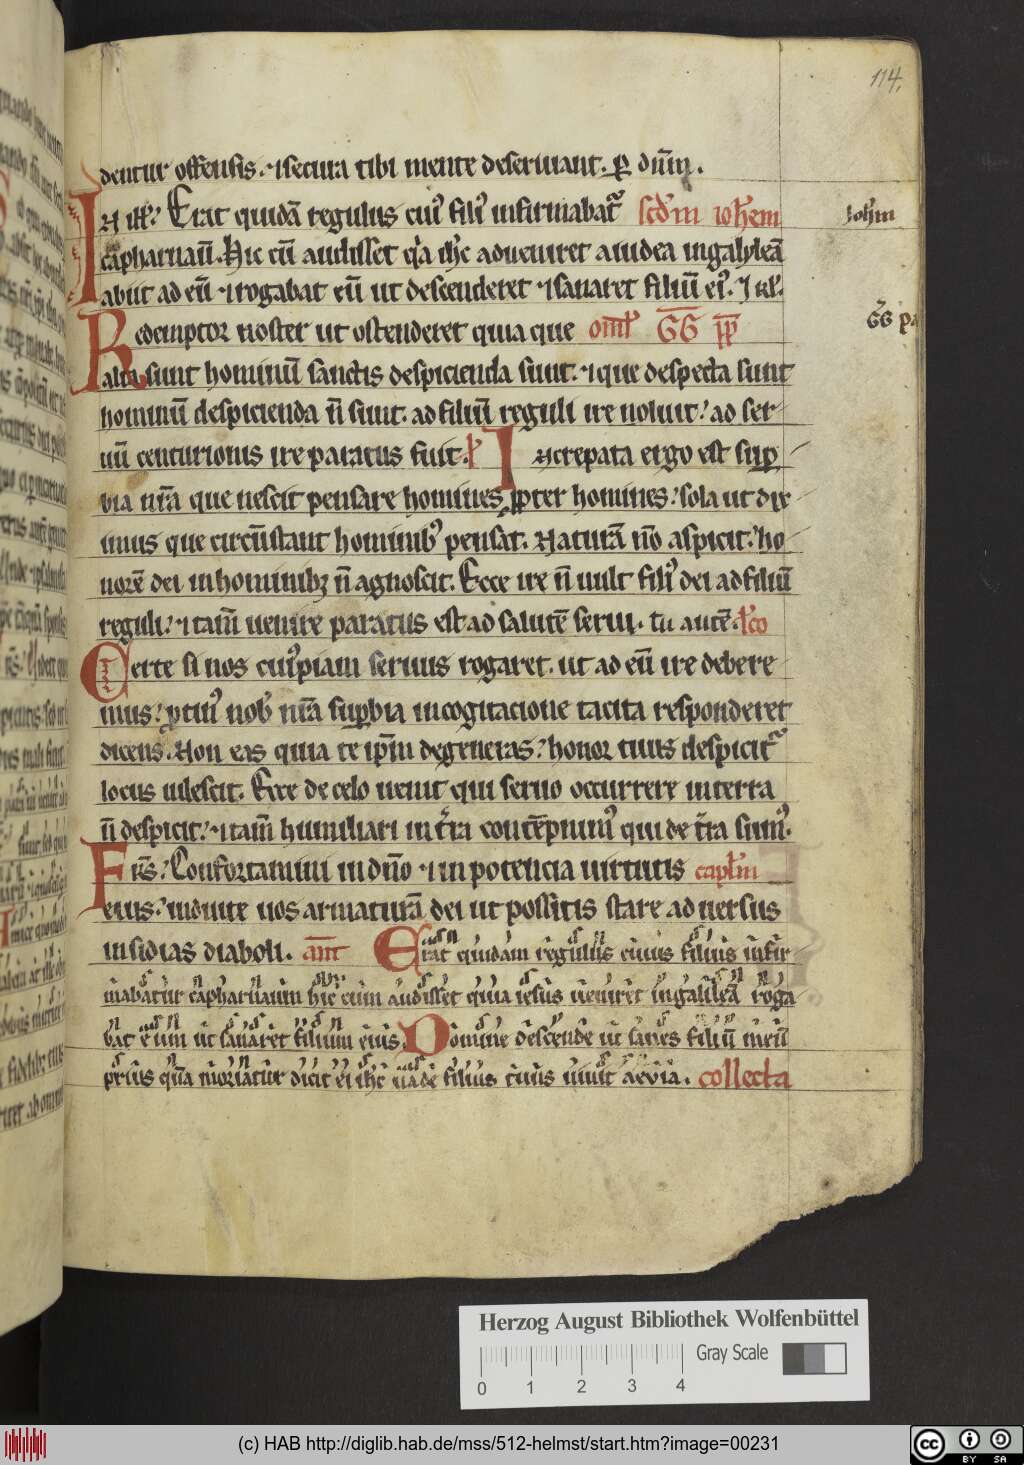 114.
dentur offensis. ⁊ secura tibi mente deseruiant. ꝑ dn̄m̄.
IN ill'. Erat quidā regulus cui' fili' infirmabat᷑ scd'm ioh'em
Joh'm
capharnaū. Hic cū audisset q'a ih'c adueniret a iudea in galyleā
abiit ad eū ⁊ rogabat eū ut descenderet ⁊ sanaret filiū ei'. J rl'.
Redemptor noster ut ostenderet quia que om̄l' GG pp̄
GG pa
alta sunt hominū sanctis despicienda sunt. ⁊ que despecta sunt
hominū despicienda n̄ sunt. ad filiū reguli ire noluit. ad ser-
uū centurionis ire paratus fuit. l' Increpata ergo est suꝑ-
bia nr̄a que nescit pensare homines ꝓpter homines. sola ut dixi-
mus que circūstant hominib' pensat. Naturā nō aspicit. ho-
norē dei in hominibꝫ n̄ agnoscit. Ecce ire n̄ uult fili' dei ad filiū
reguli. ⁊ tam̄ uenire paratus est ad salutē serui. tu autē. l'co
Certe si nos cui'piam seruus rogaret. ut ad eū ire debere-
mus. ꝓtin' nob' nr̄a suꝑbia in cogitacione tacita responderet
dicens. Non eas quia te ip̄m degeneras. honor tuus despicit᷑
locus uilescit. Ecce de celo uenit qui seruo occurrere in terra
n̄ despicit. ⁊ tam̄ humiliari in t̄ra contēpnim' qui de t̄ra sum'.
Fr̄s. Confortamini in dn̄o ⁊ in potencia uirtutis capl'm
eius. induite uos armaturā dei ut possitis stare aduersus
insidias diaboli. an̄t Erat quidam regulus cuius filius infir-
mabatur capharnaum hic cum audisset quia iesus ueniret in galileā roga-
bat eum ut sanaret filium eius. Domine descende ut sanes filiū meū
prius quā moriatur dicit ei ih'c uade filius tuus uiuit aeuia. collecta
Herzog August Bibliothek Wolfenbüttel
Gray Scale
0 1 2 3 4
(c) HAB http://diglib.hab.de/mss/512-helmst/start.htm?image=00231
cc BY SA